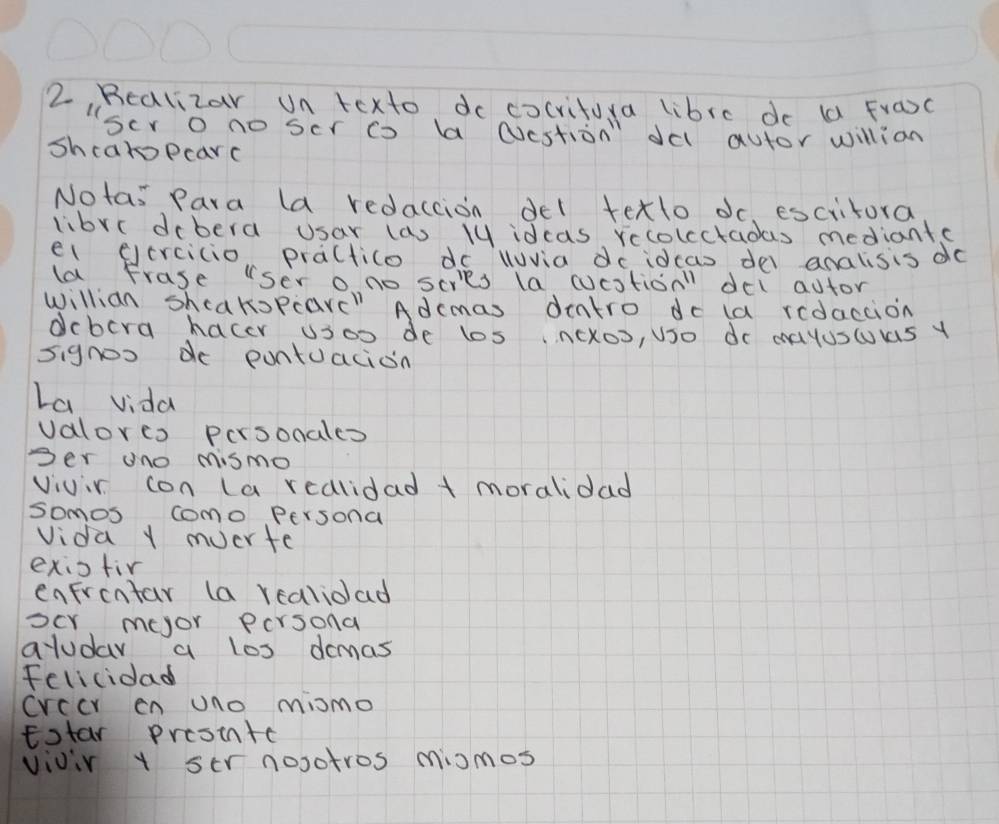 2. Realizar un texto de escritura libre de la Frase
"Ser o no ser es la cuestion" del autor willian
Sheakspeare
Nota: Para la redacción del texto de escritura
libre debera usar las 14 ideas recolectadas mediante
el ejercicio práctico de lluvia de ideas del analisis de
la frase "ser o no ser es la cuestion" del autor
willian sheakspeare" Ademas dentro de la redaccion
debera hacer usos de los nexos, uso de mayusculas y
signos de puntuación
La vida
valores personales
Ser uno mismo
Vivir con la realidad + moralidad
somos como persona
Vida y muerte
existir
enfrentar la realidad
ser mejor persona
ayudar a los demas
Felicidad
creer en uno mismo
Estar presente
vivir y ser nosotros mismos